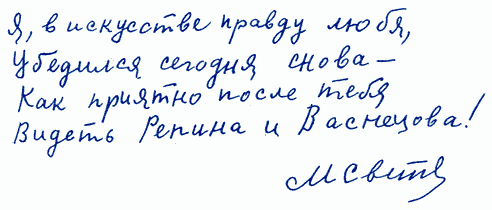 Я, в искусстве правду любя,
Убедился сегодня снова —
Как приятно после тебя
Видеть Репина и Васнецова!